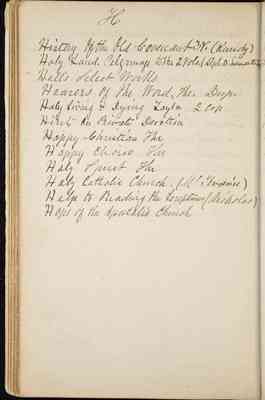 H
History of the Old Covenant (Kurtz)
Holy Land. Pilgrimage to the 2 Vols
Halls Select Works
Hearers of the Word, The
Holy Living & Dying Taylor 2 Cop
Hints on Private Devotion
Happy Christian The
Happy Choice The
Holy Spirit The
Holy Catholic Church.
Helps to Reading the Scriptures (Nicholas)
Hope of the Apostolic Church